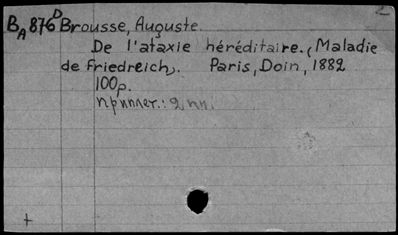 BA 876D Brousse, Auguste.
De l'ataxie héréditaire. (Maladie
de Friedreich). Paris, Doin, 1882
100p.
приплет.: 2 нн.